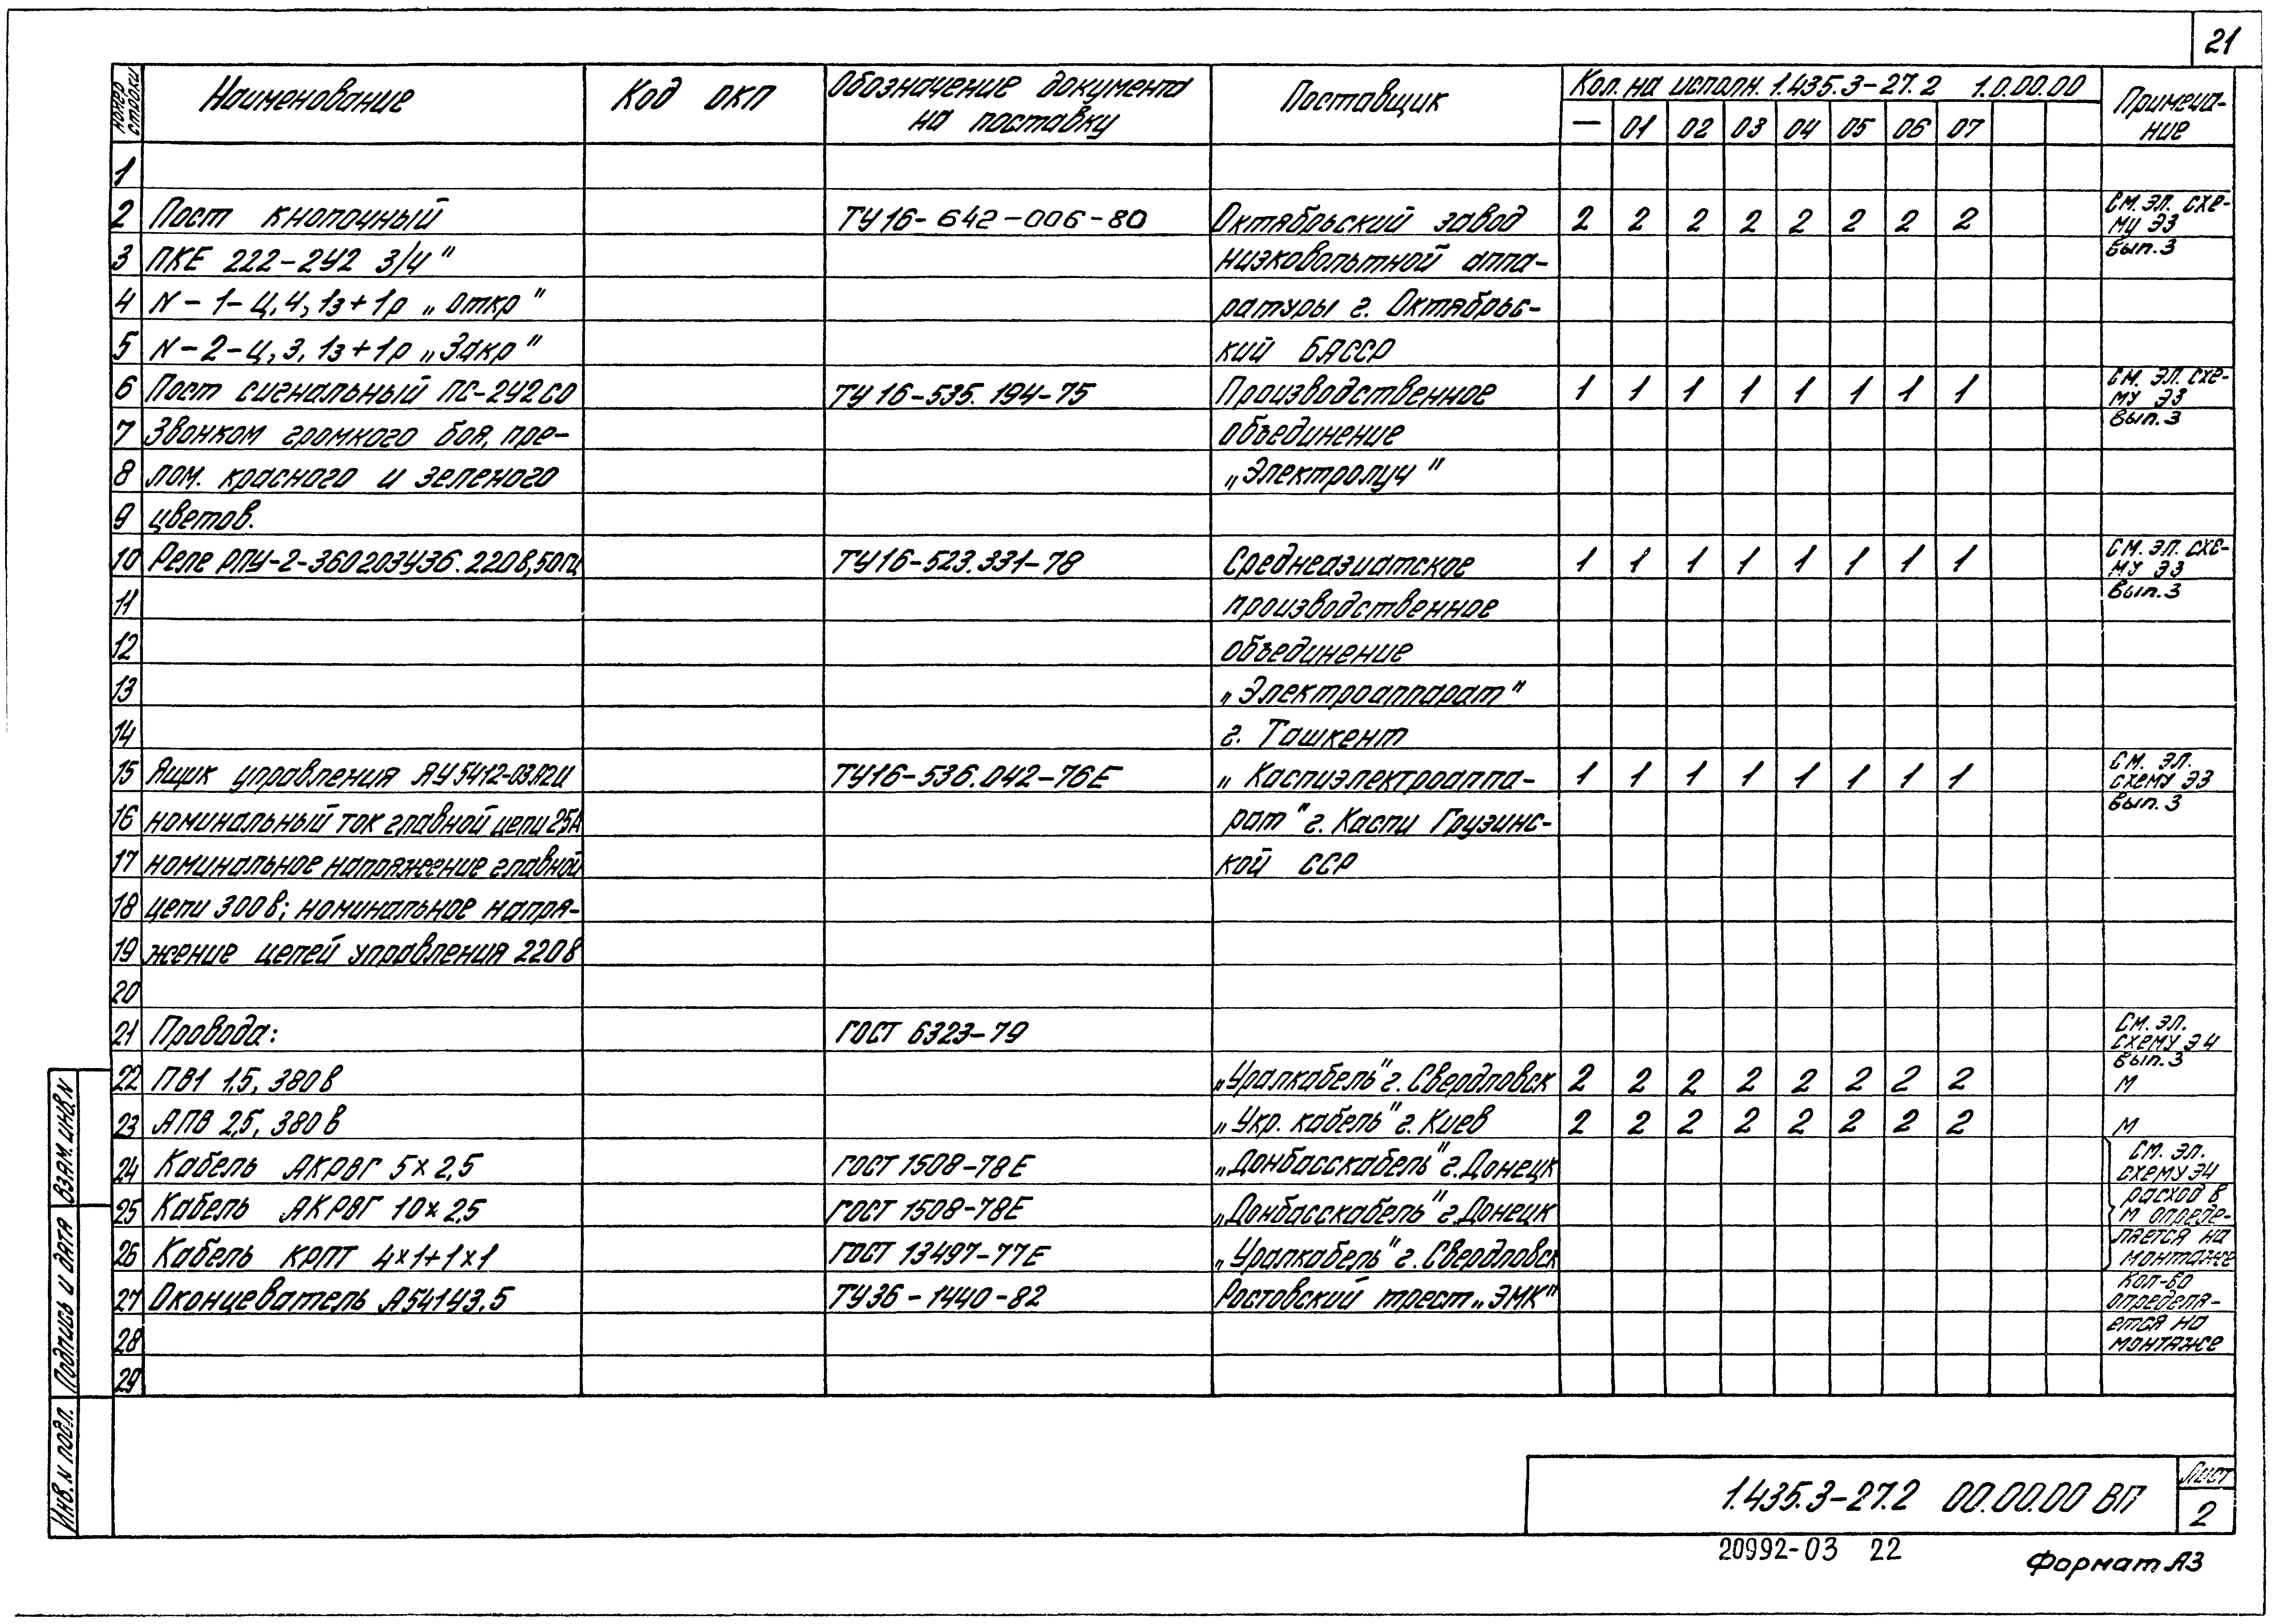 21
номер строки
Наименование
Код ОКП
Обозначение документа на поставку
Поставщик
Кол. на исполн. 1.435.3-27.2 1.0.00.00
— 01 02 03 04 05 06 07
Примеча-
ние
1
2 Пост кнопочный ТУ16-642-006-80 Октябрьский завод 2 2 2 2 2 2 2 2 См. эл. схе-
му Э3
3 ПКЕ 222-2У2 3/4" низковольтной аппа- вып. 3
4 N-1-Ц,4,1з+1р „Откр" ратуры г. Октябрьс-
5 N-2-Ц,3,1з+1р „Закр" кий БАССР
6 Пост сигнальный ПС-2У2 со ТУ16-535.194-75 Производственное 1 1 1 1 1 1 1 1 См. эл. схе-
му Э3
7 Звонком громкого боя, пре- объединение вып. 3
8 лом. красного и зеленого „Электролуч"
9 цветов.
10 Реле РПУ-2-360203У3б. 220в, 50гц ТУ16-523.331-78 Среднеазиатское 1 1 1 1 1 1 1 1 См. эл. схе-
му Э3
11 производственное вып. 3
12 объединение
13 „Электроаппарат"
14 г. Ташкент
15 Ящик управления ЯУ5412-03А2И ТУ16-536.042-76Е „Каспиэлектроаппа- 1 1 1 1 1 1 1 1 См. эл.
схему Э3
16 номинальный ток главной цепи 25А рат" г. Каспи Грузинс- вып. 3
17 номинальное напряжение главной кой ССР
18 цепи 300в; номинальное напря-
19 жение цепей управления 220в
20
21 Провода: ГОСТ 6323-79 См. эл.
схему Э4
вып. 3
22 ПВ1 1,5, 380в „Уралкабель" г. Свердловск 2 2 2 2 2 2 2 2 м
23 АПВ 2,5, 380в „Укр. кабель" г. Киев 2 2 2 2 2 2 2 2 м
24 Кабель АКРВГ 5х2,5 ГОСТ 1508-78Е „Донбасскабель" г. Донецк См. эл.
схему Э4
25 Кабель АКРВГ 10х2,5 ГОСТ 1508-78Е „Донбасскабель" г. Донецк расход в
м опреде-
26 Кабель КРПТ 4х1+1х1 ГОСТ 13497-77Е „Уралкабель" г. Свердловск ляется на
монтаже
27 Оконцеватель А54143.5 ТУ36-1440-82 Ростовский трест „ЭМК" Кол-во
определя-
28 ется на
монтаже
29
Взам. инв. N
Подпись и дата
Инв. N подл.
1.435.3-27.2 00.00.00 ВП
Лист
2
20992-03 22
Формат А3